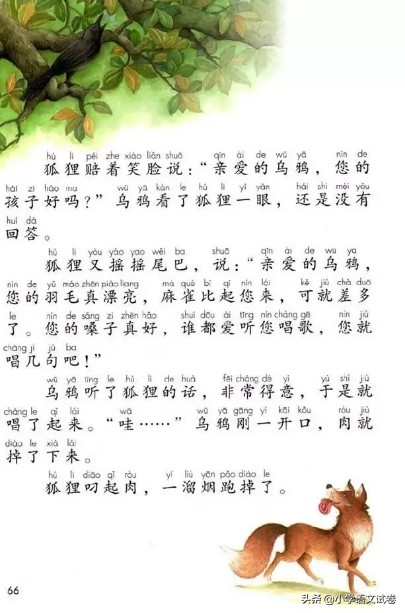 hú li péi zhe xiào liǎn shuō qīn ài de wū yā nín de
狐狸赔着笑脸说：“亲爱的乌鸦，您的
hái zi hǎo ma wū yā kàn le hú li yì yǎn hái shì méi yǒu
孩子好吗？”乌鸦看了狐狸一眼，还是没有
huí dá
回答。
hú li yòu yáo yao wěi ba shuō qīn ài de wū yā
狐狸又摇摇尾巴，说：“亲爱的乌鸦，
nín de yǔ máo zhēn piào liang má què bǐ qǐ nín lái kě jiù chà duō
您的羽毛真漂亮，麻雀比起您来，可就差多
le nín de sǎng zi zhēn hǎo shuí dōu ài tīng nín chàng gē nín jiù
了。您的嗓子真好，谁都爱听您唱歌，您就
chàng jǐ jù ba
唱几句吧！”
wū yā tīng le hú li de huà fēi cháng dé yì yú shì jiù
乌鸦听了狐狸的话，非常得意，于是就
chàng le qǐ lái wā wū yā gāng yì kāi kǒu ròu jiù
唱了起来。“哇……”乌鸦刚一开口，肉就
diào le xià lái
掉了下来。
hú li diāo qǐ ròu yí liù yān pǎo diào le
狐狸叼起肉，一溜烟跑掉了。
66
头条 @小学语文试卷